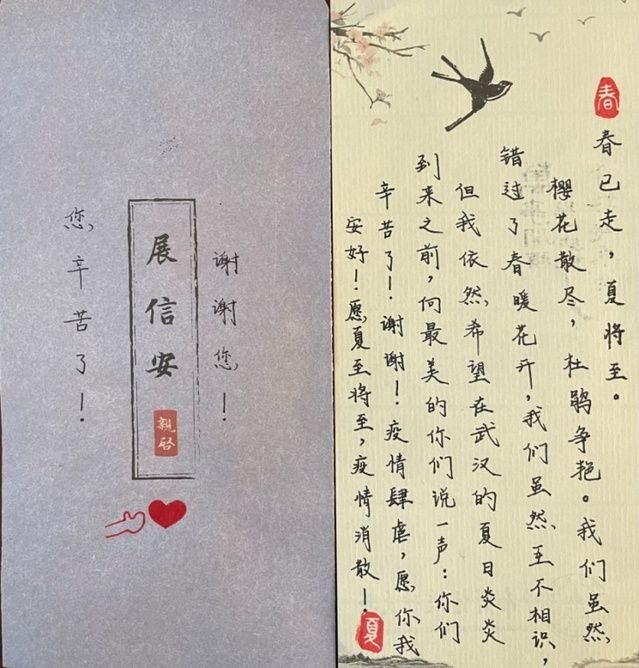 谢谢您！
展信安
親启
您辛苦了！
春
春已走，夏将至。
樱花散尽，杜鹃争艳。我们虽然
错过了春暖花开，我们虽然互不相识
但我依然希望在武汉的夏日炎炎
到来之前，向最美的你们说一声：你们
辛苦了！谢谢！疫情肆虐，愿你我
安好！愿夏至将至，疫情消散！
夏